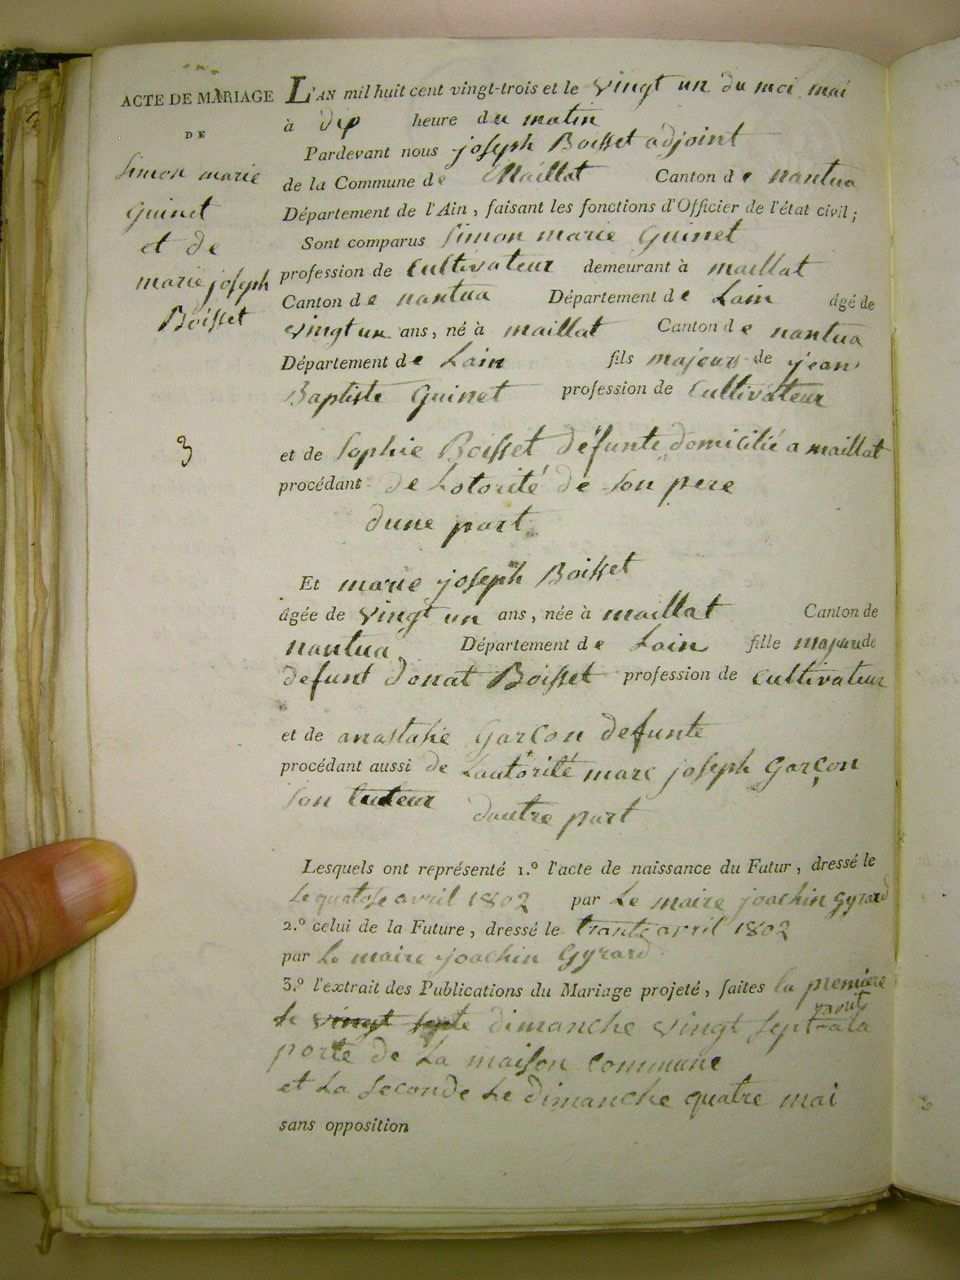 ACTE DE MARIAGE
DE
Simon marie
Guinet
et de
marie joseph
Boisset
3
L'AN mil huit cent vingt-trois et le vingt un du moi mai
à dix heure du matin
Pardevant nous joseph Boisset adjoint
de la Commune de Maillat Canton de nantua
Département de l'Ain, faisant les fonctions d'Officier de l'état civil;
Sont comparus Simon marie Guinet
profession de Cultivateur demeurant à maillat
Canton de nantua Département de Lain âgé de
vingt un ans, né à maillat Canton de nantua
Département de Lain fils majeur de jean
Baptiste Guinet profession de Cultivateur
et de Sophie Boisset défunte domicilié a maillat
procédant de Lotorité de Son pere
dune part
Et marie joseph Boisset
âgée de vingt un ans, née à maillat Canton de
nantua Département de Lain fille majeur de
defunt donat Boisset profession de cultivateur
et de anastasie Garçon defunte
procédant aussi de Lautorité marc joseph Garçon
Son tuteur dautre part
Lesquels ont représenté 1.º l'acte de naissance du Futur, dressé le
Le quatose avril 1802 par Le maire joachin Gyrard
2.º celui de la Future, dressé le trante avril 1802
par Le maire joachin Gyrard
3.º l'extrait des Publications du Mariage projeté, faites la première
le vingt septe dimanche vingt sept a la
porte de La maison commune
et La Seconde Le dimanche quatre mai
sans opposition